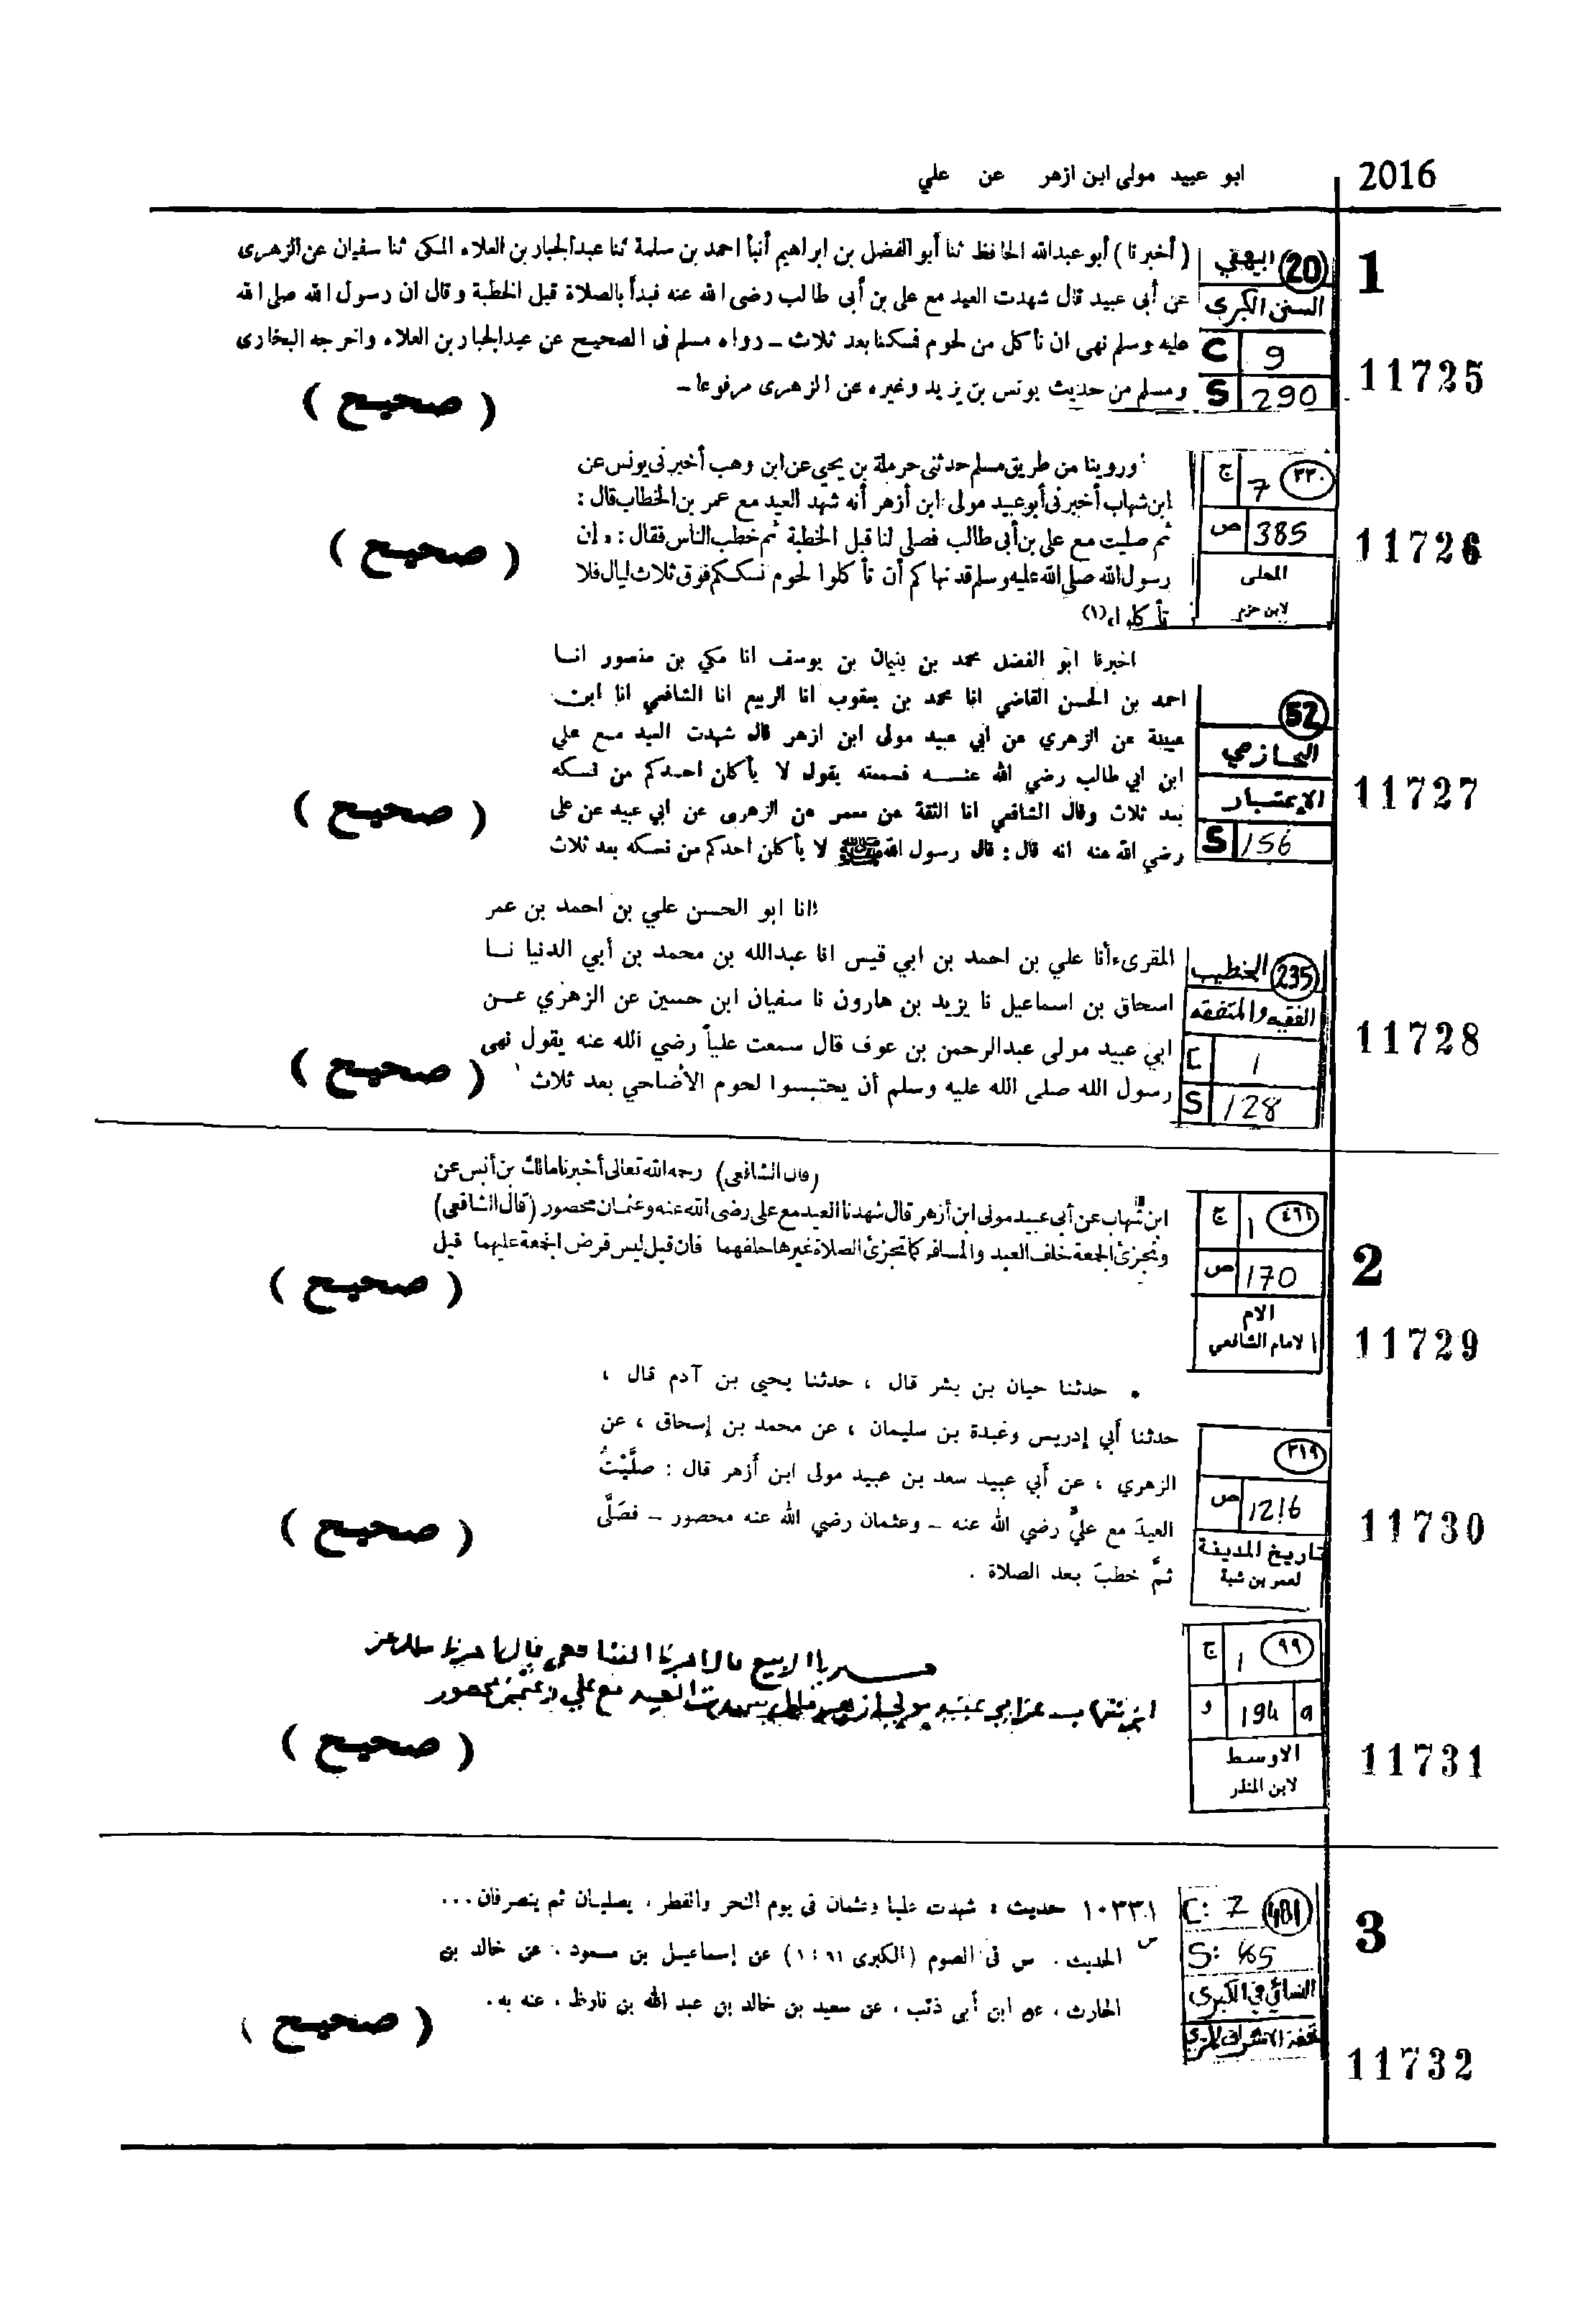 2016
ابو عبيد مولى ابن ازهر عن علي
1
20 البيهقي
السنن الكبرى
C 9
S 290
11725
( أخبرنا ) أبو عبدالله الحافظ ثنا أبو الفضل بن ابراهيم أنبأ احمد بن سلمة ثنا عبد الجبار بن العلاء المكى ثنا سفيان عن الزهرى
عن أبى عبيد قال شهدت العيد مع على بن أبى طالب رضى الله عنه فبدأ بالصلاة قبل الخطبة وقال ان رسول الله صلى الله
عليه وسلم نهى ان نأكل من لحوم نسكنا بعد ثلاث – رواه مسلم فى الصحيح عن عبد الجبار بن العلاء واخرجه البخارى
ومسلم من حديث يونس بن يزيد وغيره عن الزهرى مرفوعا –
( صحيح )
٢٢٠
ج 7
ص 385
المحلى
لابن حزم
11726
وروينا من طريق مسلم حدثنى حرملة بن يحيى عن ابن وهب أخبرنى يونس عن
ابن شهاب أخبرنى أبو عبيد مولى ابن أزهر أنه شهد العيد مع عمر بن الخطاب قال :
ثم صليت مع على بن أبى طالب فصلى لنا قبل الخطبة ثم خطب الناس فقال : « إن
رسول الله صلى الله عليه وسلم قد نهاكم أن تأكلوا لحوم نسككم فوق ثلاث ليال فلا
تأكلوا» (١)
( صحيح )
52
الحازمي
الإعتبار
S 156
11727
اخبرنا ابو الفضل محمد بن بنيمان بن يوسف انا مكي بن منصور انا
احمد بن الحسن القاضي انا محمد بن يعقوب انا الربيع انا الشافعي انا ابن
عيينة عن الزهري عن ابي عبيد مولى ابن ازهر قال شهدت العيد مع علي
ابن ابي طالب رضي الله عنه فسمعته يقول لا يأكلن احدكم من نسكه
بعد ثلاث وقال الشافعي انا الثقة عن معمر عن الزهرى عن ابي عبيد عن على
رضي الله عنه انه قال : قال رسول الله ﷺ لا يأكلن احدكم من نسكه بعد ثلاث
( صحيح )
235 الخطيب
الفقيه والمتفقه
C 1
S 128
11728
انا ابو الحسن علي بن احمد بن عمر
المقرىء أنا علي بن احمد بن ابي قيس انا عبدالله بن محمد بن أبي الدنيا نا
اسحاق بن اسماعيل نا يزيد بن هارون نا سفيان ابن حسين عن الزهزي عن
ابي عبيد مولى عبدالرحمن بن عوف قال سمعت علياً رضي الله عنه يقول نهى
رسول الله صلى الله عليه وسلم أن يحتبسوا لحوم الأضاحي بعد ثلاث
( صحيح )
2
٤٦١
ج 1
ص 170
الام
الامام الشافعي
11729
(قال الشافعى) رحمه الله تعالى أخبرنا مالك بن أنس عن
ابن شهاب عن أبى عبيد مولى ابن أزهر قال شهدنا العيد مع على رضى الله عنه وعثمان محصور (قال الشافعى)
وتجزئ الجمعة خلف العبد والمسافر كما تجزئ الصلاة غيرها خلفهما فان قيل ليس فرض الجمعة عليهما قيل
( صحيح )
٣١٩
ص 1216
تاريخ المدينة
لعمر بن شبة
11730
* حدثنا حيان بن بشر قال ، حدثنا يحيى بن آدم قال ،
حدثنا أبي إدريس وعبدة بن سليمان ، عن محمد بن إسحاق ، عن
الزهري ، عن أبي عبيد سعد بن عبيد مولى ابن أزهر قال : صلَّيْتُ
العيدَ مع عليٍّ رضي الله عنه – وعثمان رضي الله عنه محصور – فصَلَّى
ثمَّ خطبَ بعد الصلاة .
( صحيح )
٩٩
ج 1
و 194 a
الاوسط
لابن المنذر
11731
الربيع قال اخبرنا الشافعي قال اخبرنا مالك عن
ابن شهاب عن ابي عبيد مولى ازهر قال شهدت العيد مع علي وعثمن محصور
( صحيح )
3
481
C: 7
S: 485
النسائي في الكبرى
تحفة الاشراف للمزى
11732
١٠٣٣١ حديث : شهدت عليا وعثمان فى يوم النحر والفطر ، يصليان ثم ينصرفان ...
س
الحديث . س فى الصوم (الكبرى ٦١ : ١) عن إسماعيل بن مسعود ، عن خالد بن
الحارث ، عن ابن أبى ذئب ، عن سعيد بن خالد بن عبد الله بن قارظ ، عنه به .
( صحيح )